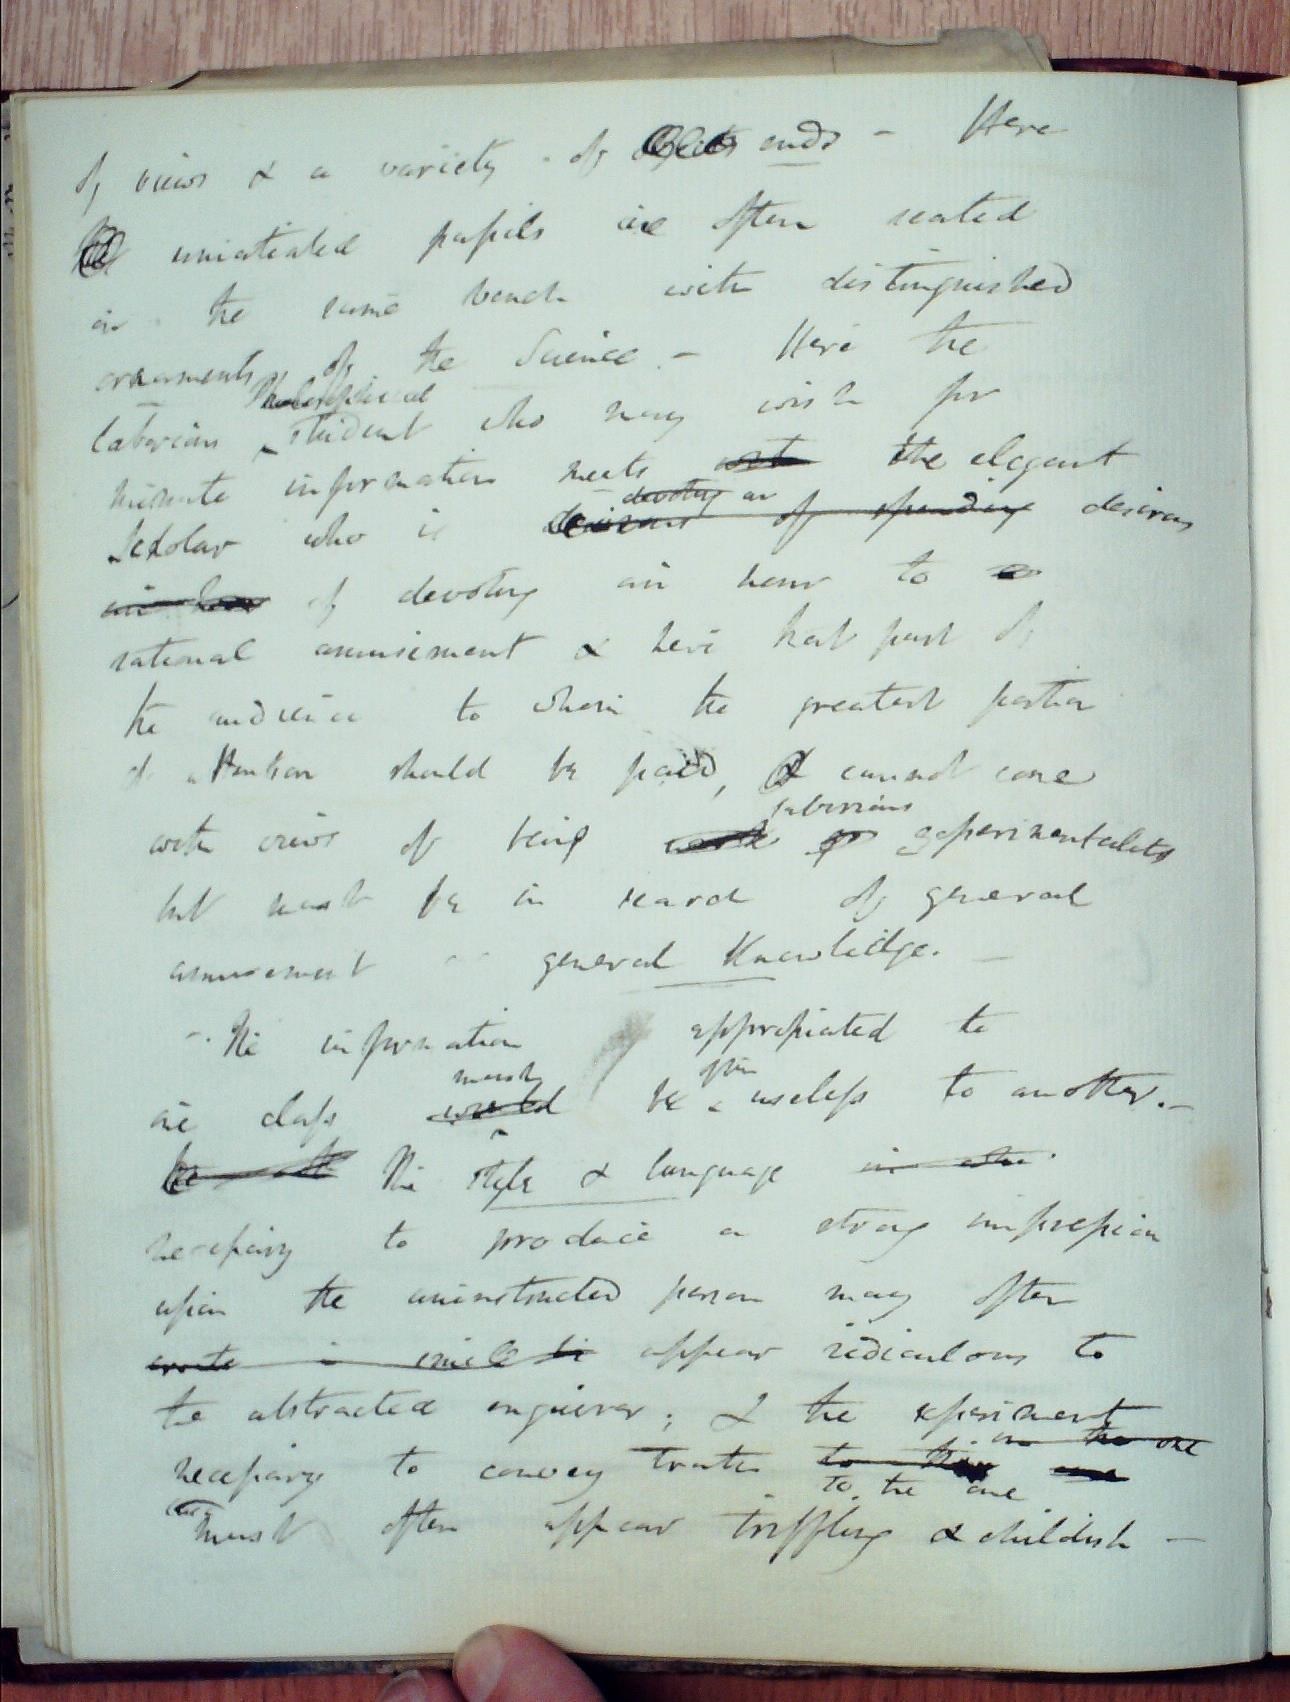 of views & a variety of Objects ends - Here
uniatiated pupils are often seated
on the same bench with distinguished
ornaments of the Science. - Here the
Philosophical
laborious student who may wish for
minute information meets with the elegant
devoting an
Scholar who is desirous of spending desirous
an hour of devoting an hour to a
rational amusement & here that part of
the audience to whom the greatest portion
of attention should be paid, & cannot come
laborious
with views of being experimentalists
but must be in search of general
amusement general Knowledge. -
- The information appropiated to
must often
one class would be useless to another. -
The style & language in
necessary to produce a strong impression
upon the uninstructed person may often
appear ridiculous to
the abstracted enquirer; & the experiment
in the one
necessary to convey truths to
to the one
must often appear triffling & childish -